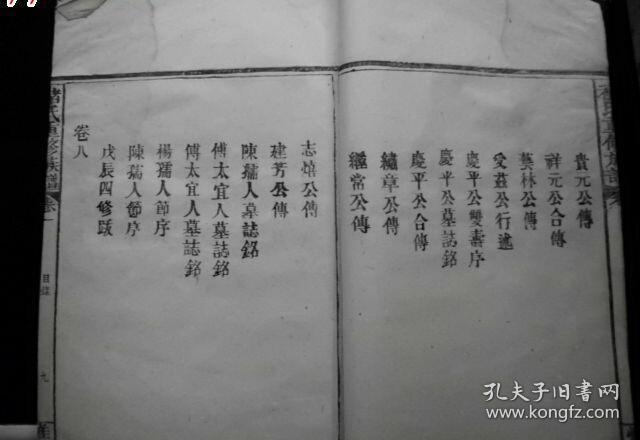 貴元公傳
祥元公合傳
藝林公傳
愛茲公行述
慶平公雙壽序
慶平公墓誌銘
慶平公合傳
繡章公傳
繼常公傳
志熺公傳
建芳公傳
陳孺人墓誌銘
傅太宜人墓誌銘
傅太宜人墓誌銘
楊孺人節序
陳孺人節序
戊辰四修跋
卷八
氏重修族譜
目錄
九
孔夫子旧书网
www.kongfz.com